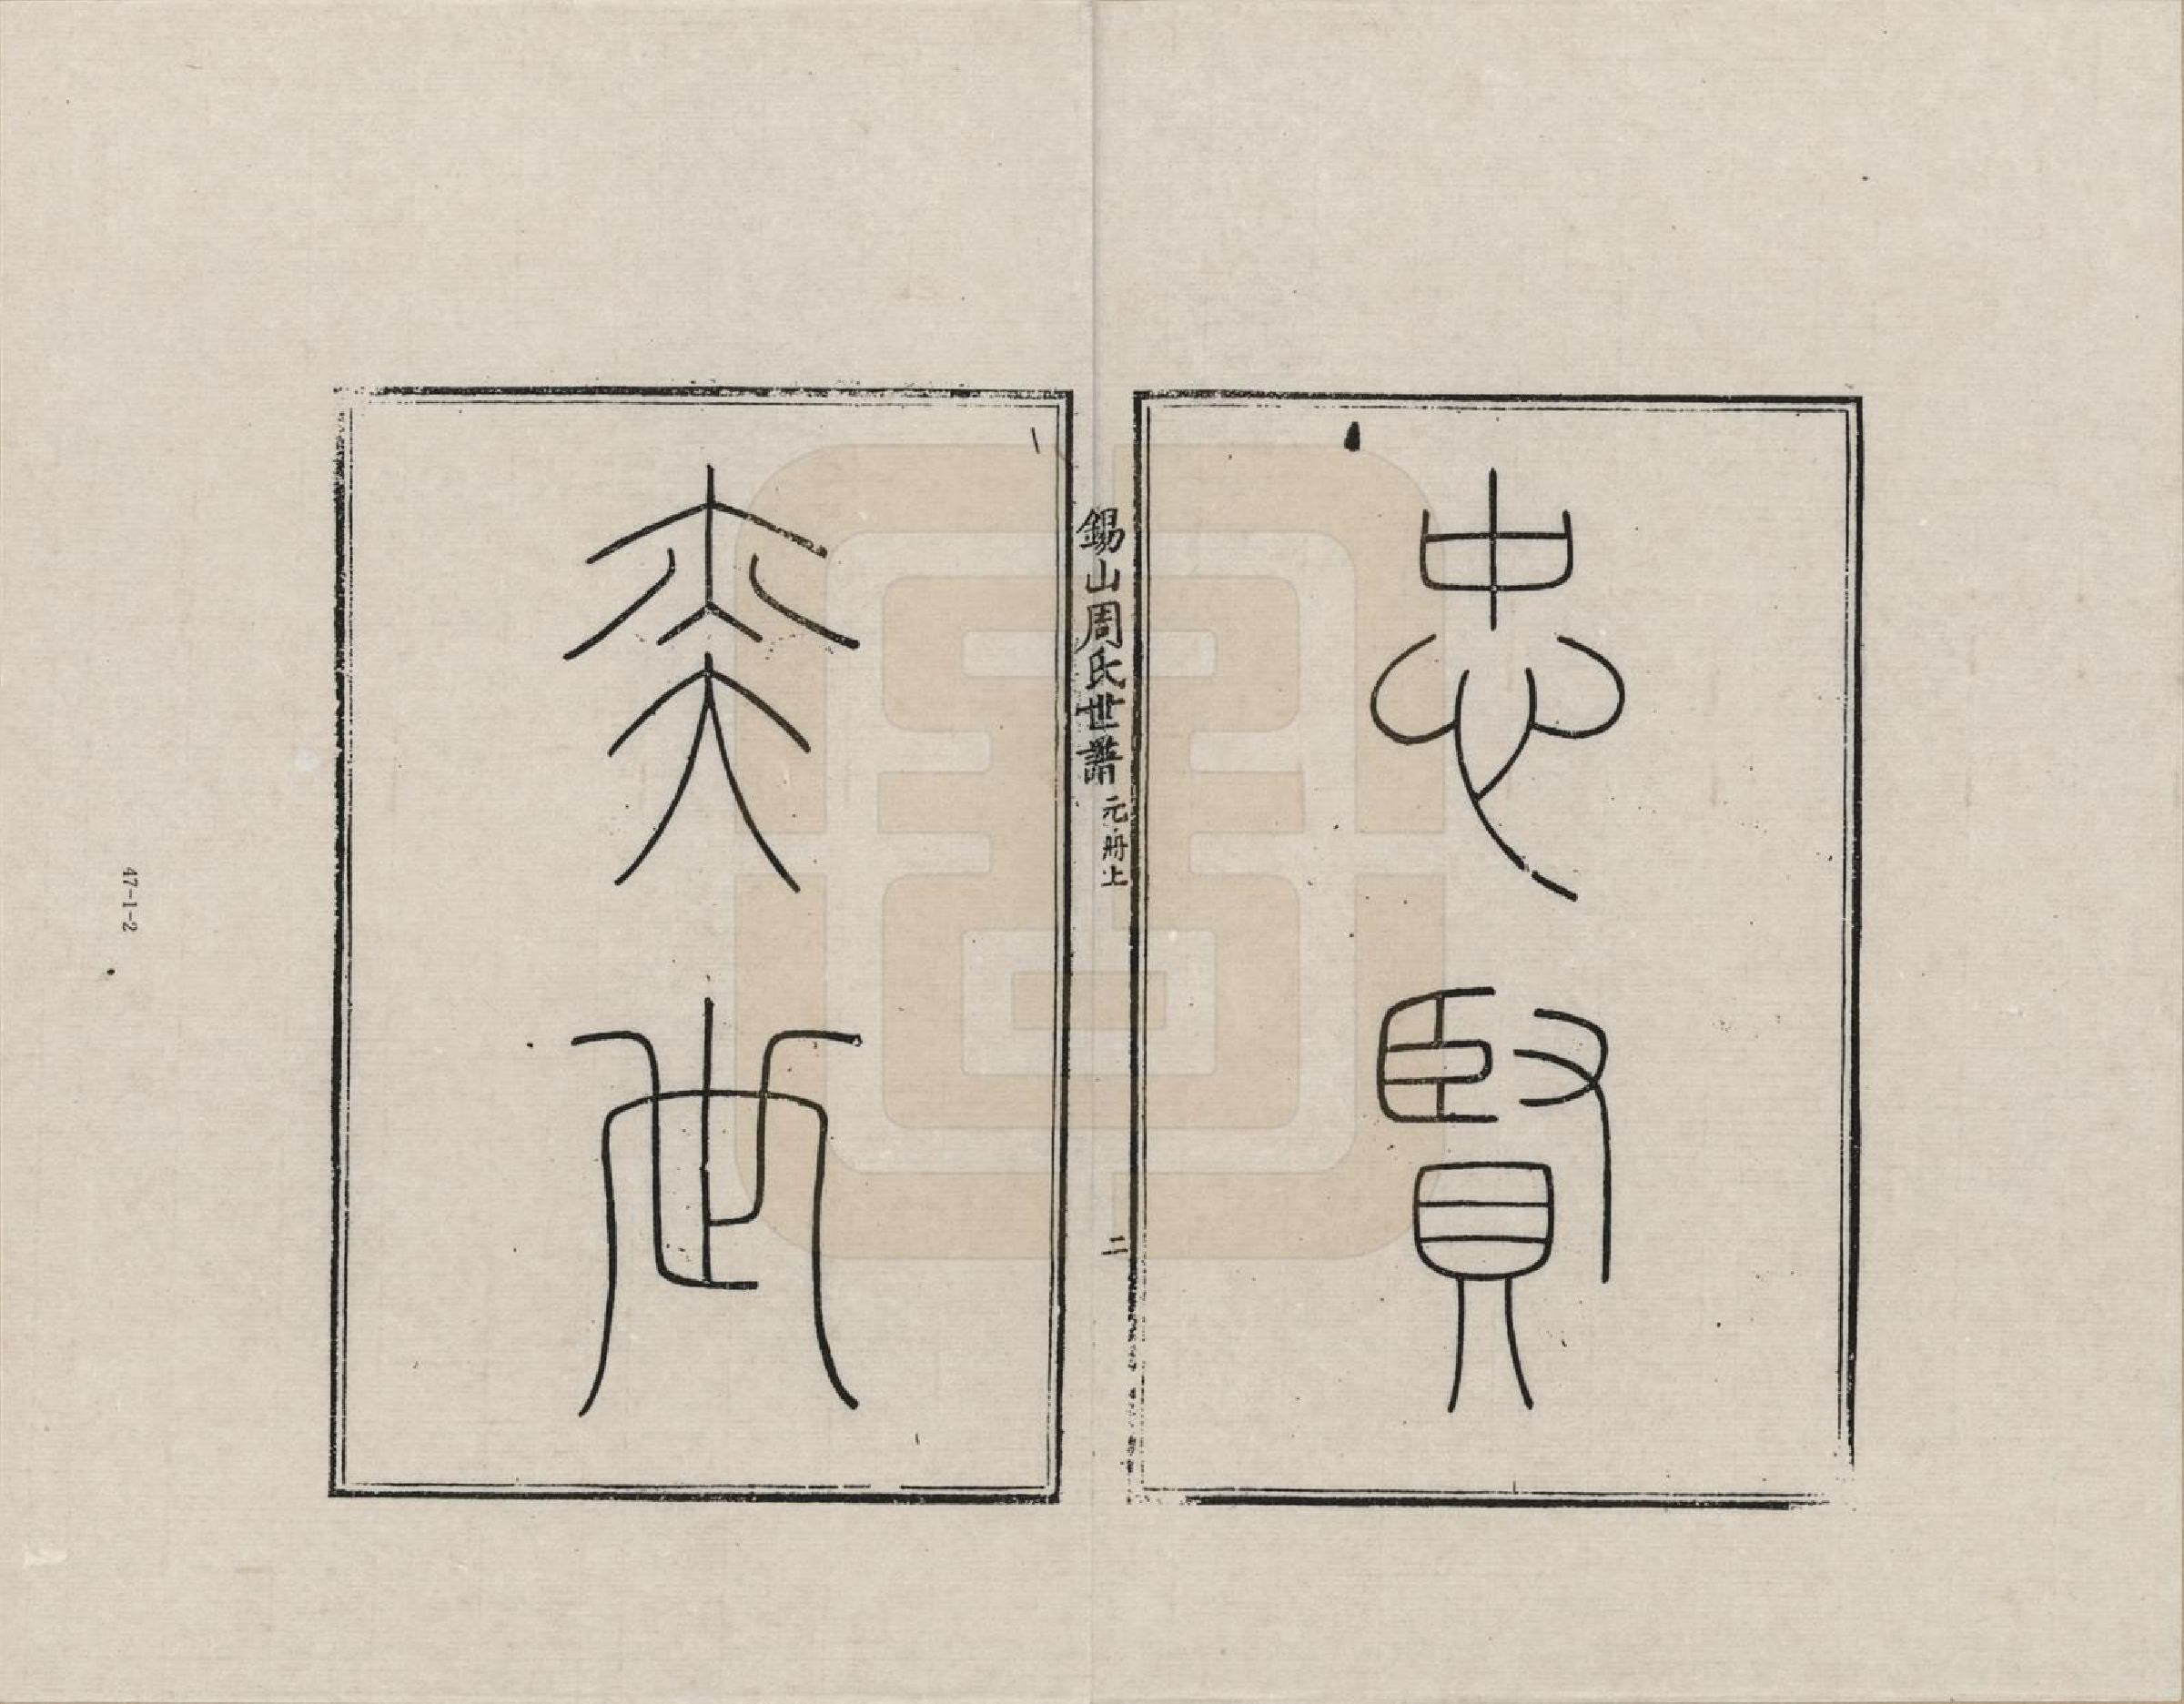 忠賢
錫山周氏世譜 元册上 二
奕世
47-1-2